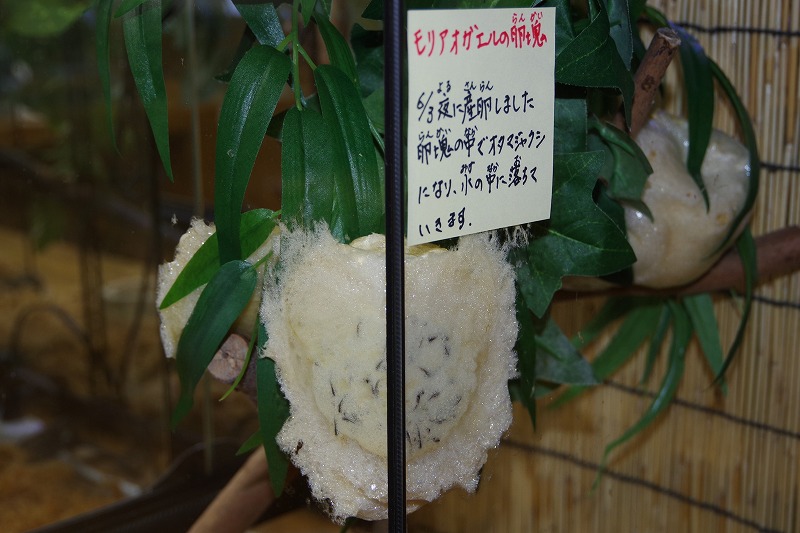 モリアオガエルの卵塊
らんかい
6/3夜に産卵しました
よる さんらん
卵塊の中でオタマジャクシ
らんかい なか
になり、水の中に落ちて
みず なか お
いきます.